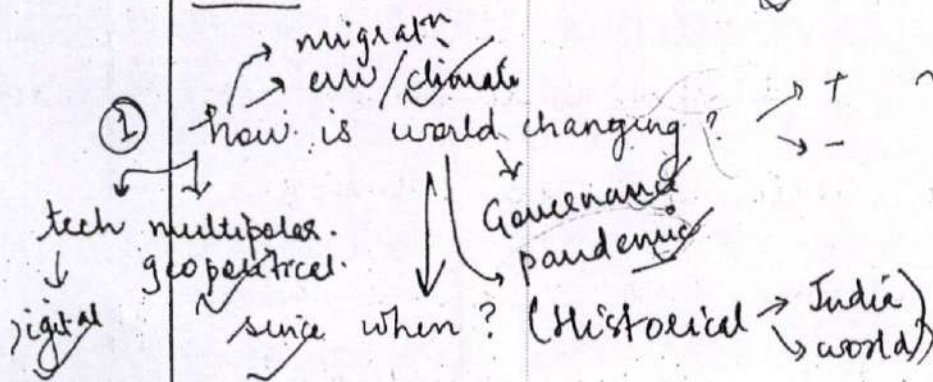 migratⁿ
env/climate
① how is world changing? + -
tech multipolar. Governance
geopolitical. pandemic
digital since when? (Historical India world)